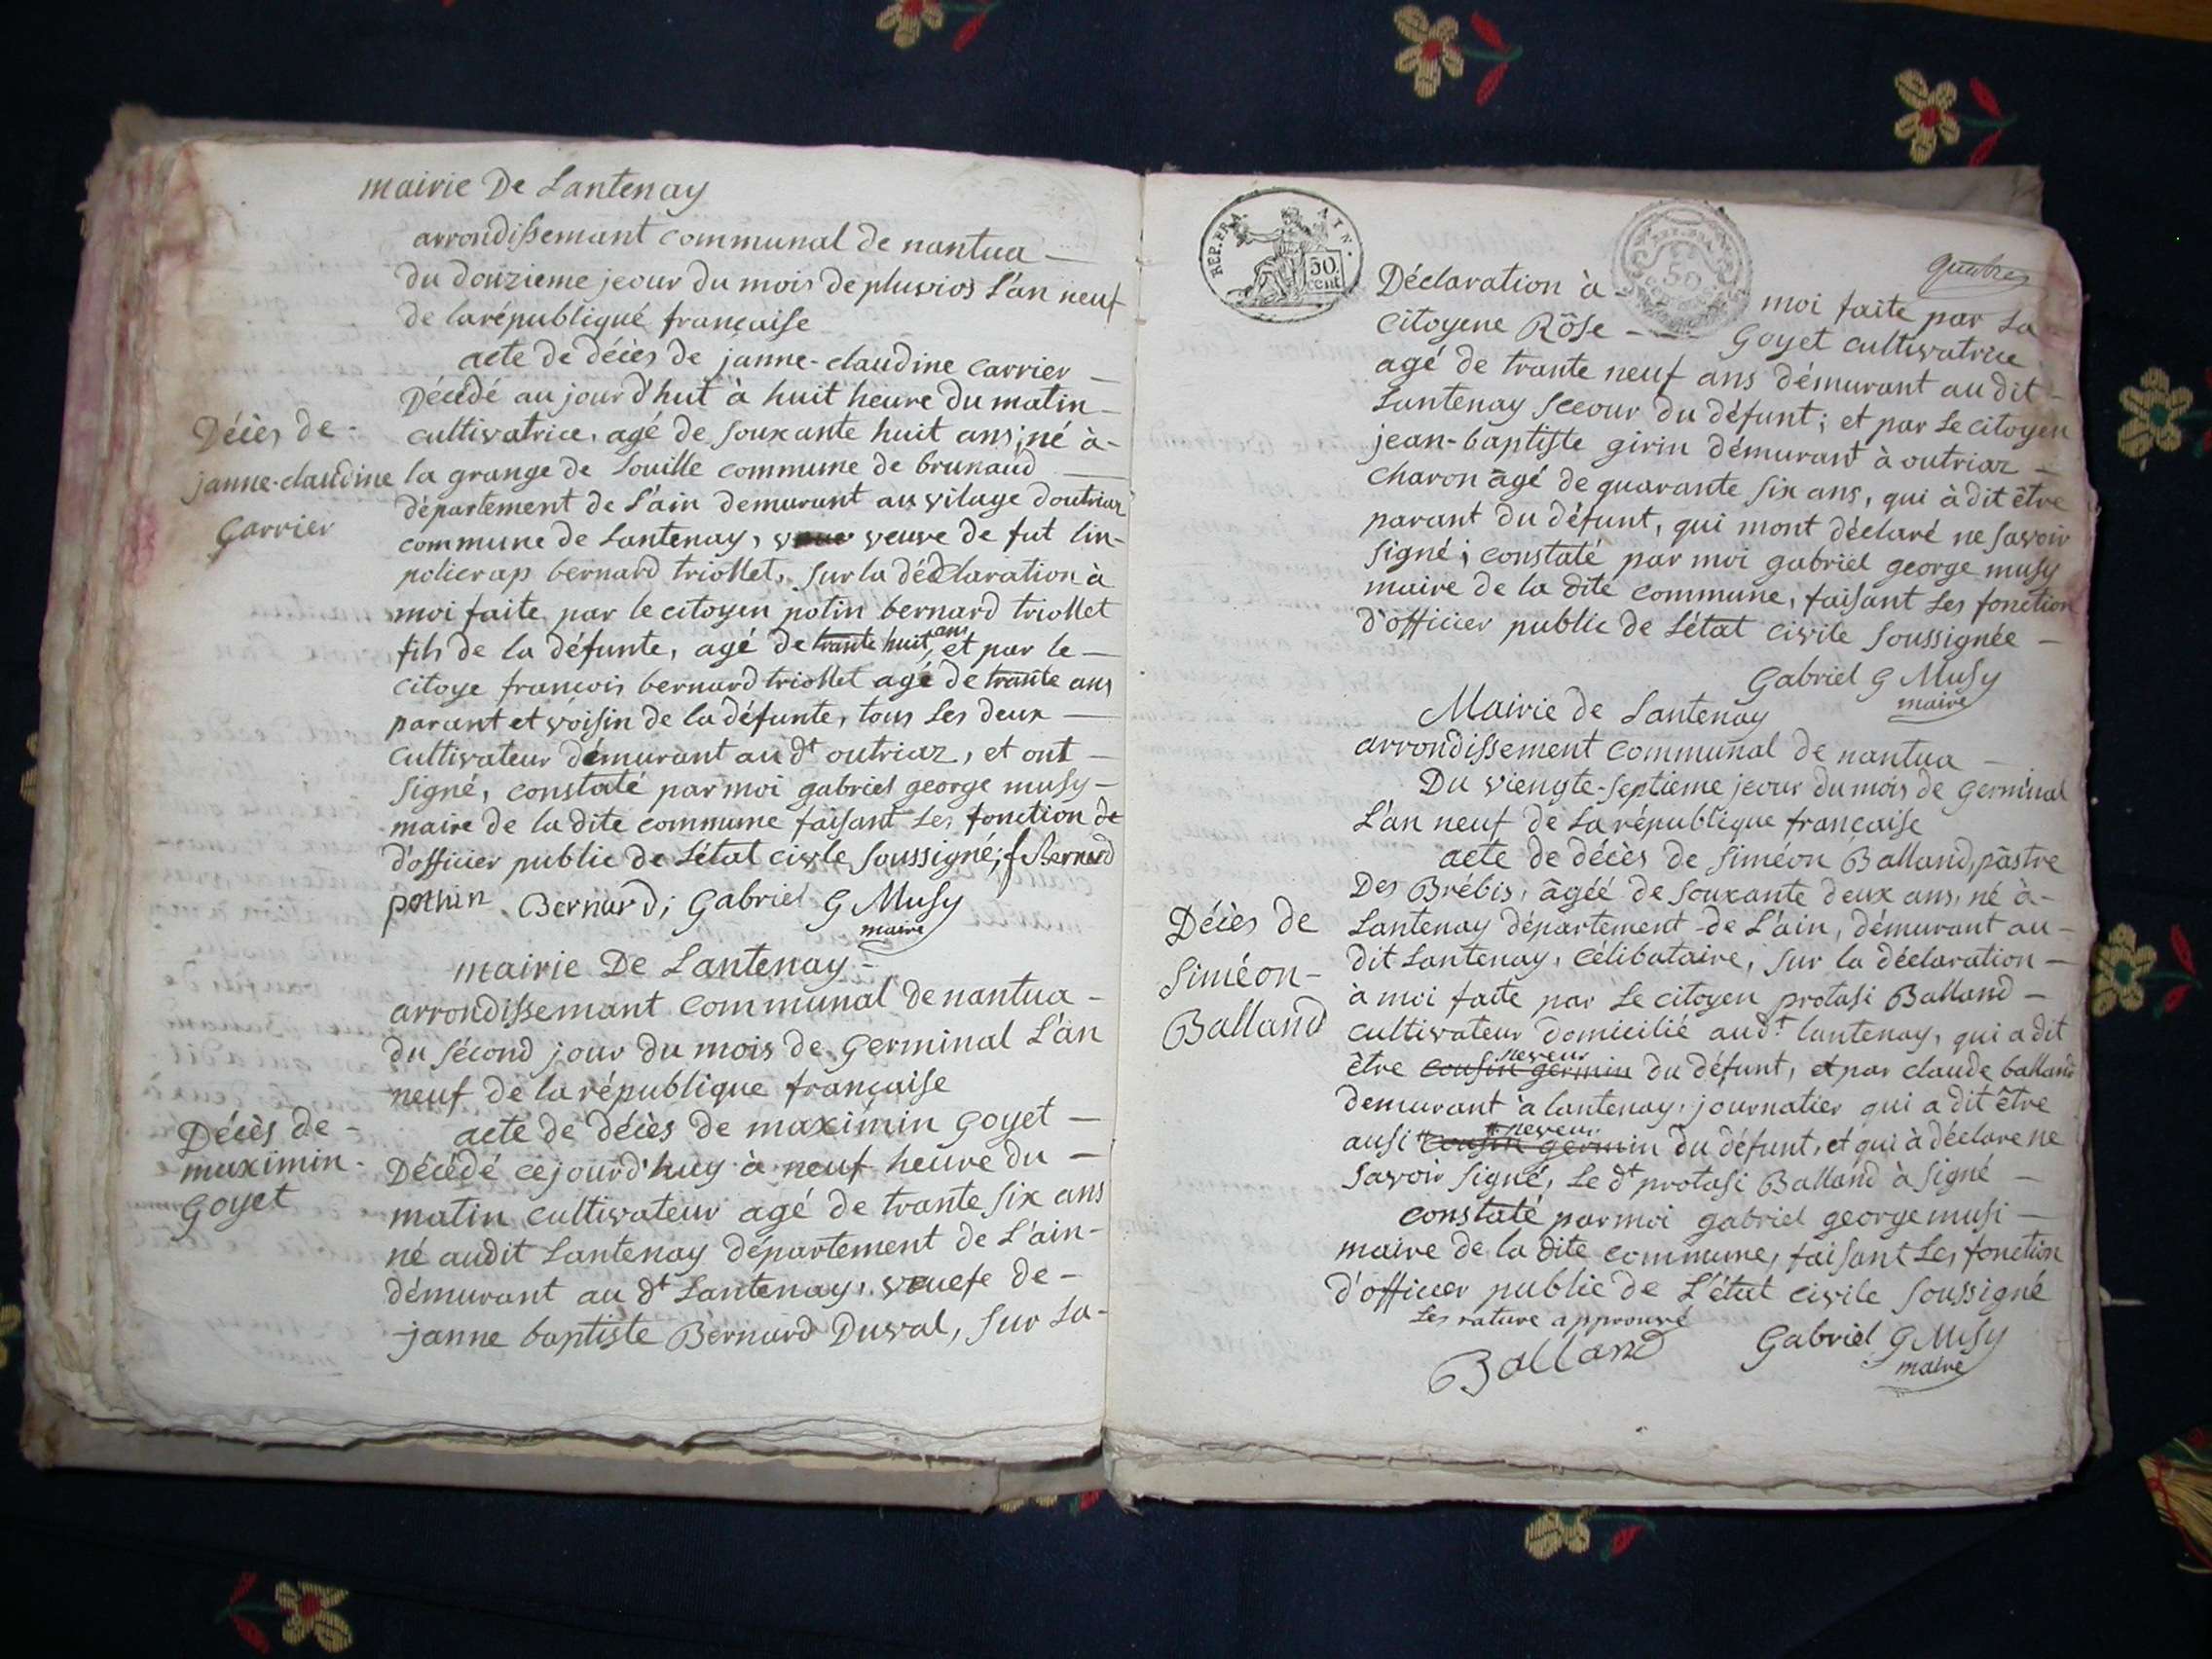 mairie De Lantenay
arrondissemant communal de nantua
du douzieme jeour du mois de pluvios L'an neuf
de la républiqué française
acte de décès de janne-claudine carrier
Décédé au jour d'hut à huit heure du matin
Décès de
cultivatrice, agé de souxante huit ans; né à
janne-claudine
la grange de Souille commune de brunaud
département de L'ain demurant au vilage doutriaz
Carrier
commune de Lantenay, veuve de fut lin-
policrap bernard triollet, sur la déclaration à
moi faite par le citoyen potin bernard triollet
fils de la défunte, agé de trante huit ans, et par le
citoye francois bernard triollet agé de trante ans
parant et voisin de la défunte, tous Les deux
cultivateur démurant au dt outriaz, et ont
signé, constaté par moi gabriel george musy
maire de la dite commune faisant Les fonction de
d'officier public de L'état civile soussigné; f Bernard
pothin Bernard; Gabriel G Musy
maire
mairie De Lantenay
arrondissemant communal de nantua
du sécond jour du mois de Germinal L'an
neuf de la république française
Décès de
acte de décès de maximin Goyet
maximin
Décédé cejourd'huy à neuf heure du
Goyet
matin cultivateur agé de trante six ans
né audit Lantenay département de L'ain
démurant au dt Lantenay, veuefe de
janne baptiste Bernard Duval, sur La
REP. FRA.
50 cent
Déclaration à moi faite par La
citoyene Rôse Goyet cultivatrice
agé de trante neuf ans démurant au dit
Lantenay sceour du défunt; et par Le citoyen
jean-baptiste girin démurant à outriaz
charon âgé de quarante six ans, qui à dit être
parant du défunt, qui mont déclaré ne savoir
signé; constaté par moi gabriel george musy
maire de la dite commune, faisant Les fonction
d'officier public de L'état civile soussignée
Gabriel G Musy
maire
Mairie de Lantenay
arrondissement communal de nantua
Du viengte-septieme jeour du mois de Germinal
L'an neuf de La république française
acte de décès de siméon Balland, pâstre
Des Brébis, âgéé de souxante deux ans, né à
Décès de
Lantenay département de L'ain, démurant au
Siméon
dit Lantenay, célibataire, sur la déclaration
à moi faite par Le citoyen protasi Balland
Balland
cultivateur domicilié audt lantenay, qui a dit
être cousin germin neveur du défunt, et par claude balland
demurant à lantenay, journatier qui a dit être
ausi cousin germin neveur du défunt, et qui à déclare ne
savoir signé, Le dt protasi Balland à signé
constaté par moi gabriel george musi
maire de la dite commune, faisant Les fonction
d'officier public de L'état civile soussigné
Les rature approuvé
Balland
Gabriel G Musy
maire